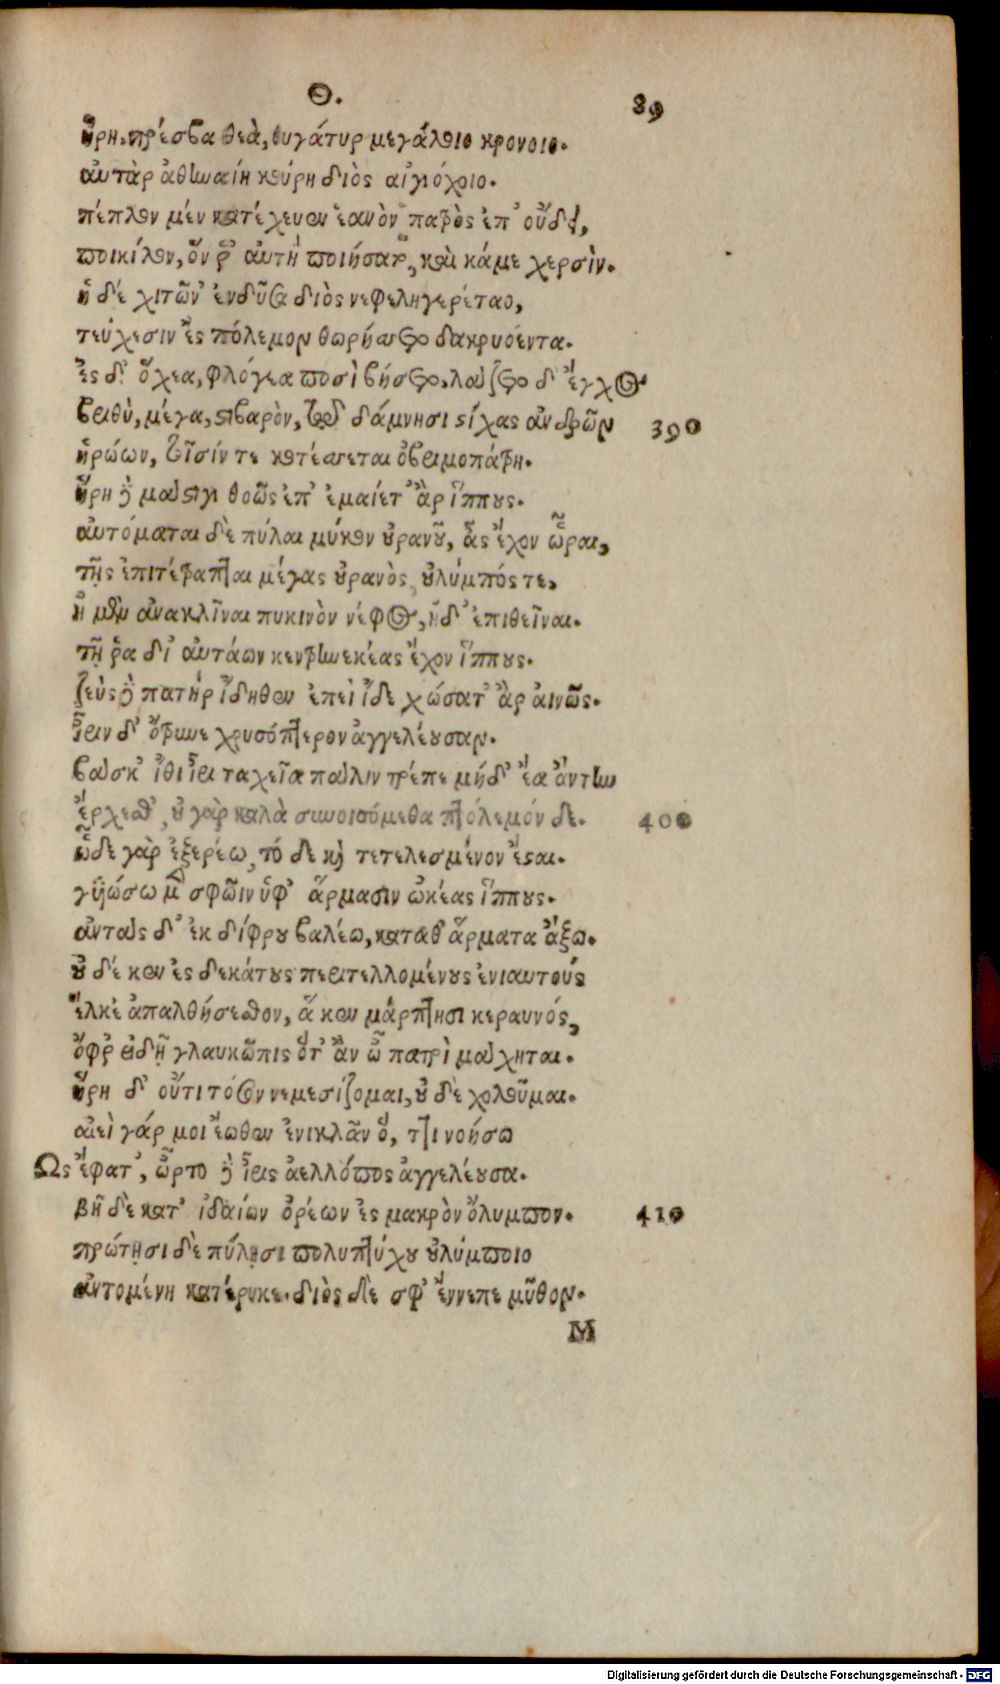 Θ. 89
ἥρη, πρέσβα θεὰ, θυγάτηρ μεγάλοιο κρονοιο.
αὐτὰρ ἀθηναίη κούρη διὸς αἰγιόχοιο.
πέπλον μέν κατέχευεν ἑανὸν πατρὸς ἐπ' οὔδει,
ποικίλον, ὅν ῥ' αὐτὴ ποιήσατο, καὶ κάμε χερσὶν.
ἡ δέ χιτῶν' ἐνδῦσα διὸς νεφεληγερέταο,
τεύχεσιν ἐς πόλεμον θωρήσσετο δακρυόεντα.
ἐς δ' ὄχεα, φλόγεα ποσὶ βήσετο, λάζετο δ' ἔγχος
βριθὺ, μέγα, στιβαρὸν, τῷ δάμνησι στίχας ἀνδρῶν 390
ἡρώων, τοῖσίν τε κοτέσσεται ὀβριμοπάτρη.
ἥρη δὲ μάστιγι θοῶς ἐπ' ἐμαίετ' ἂρ ἵππους.
αὐτόμαται δὲ πύλαι μύκον οὐρανοῦ, ἃς ἔχον ὧραι,
τῇς ἐπιτέτραπται μέγας οὐρανὸς, οὐλύμπός τε,
ἢ μὲν ἀνακλῖναι πυκινὸν νέφος, ἠδ' ἐπιθεῖναι.
τῇ ῥα δι' αὐτάων κεντρηνεκέας ἔχον ἵππους.
ζεὺς δὲ πατὴρ ἴδηθεν ἐπεὶ ἴδε χώσατ' ἂρ αἰνῶς.
ἶριν δ' ὄτρυνε χρυσόπτερον ἀγγελέουσαν.
βάσκ' ἴθι ἶρι ταχεῖα πάλιν τρέπε μήδ' ἔα ἄντην
ἔρχεσθ', οὐ γὰρ καλὰ συνοισόμεθα πτόλεμόν δε. 400
ὧδε γὰρ ἐξερέω, τό δε καὶ τετελεσμένον ἔσται.
γυιώσω μέν σφῶιν ὑφ' ἅρμασιν ὠκέας ἵππους.
αὐτὰς δ' ἐκ δίφρου βαλέω, κατάθ' ἅρματα ἄξω.
οὐ δέ κεν ἐς δεκάτους περιτελλομένους ἐνιαυτούς
ἕλκε' ἀπαλθήσεσθον, ἅ κεν μάρπτησι κεραυνός,
ὄφρ' εἰδῇ γλαυκῶπις ὅτ' ἂν ᾧ πατρὶ μάχηται.
ἥρη δ' οὔτι τόσον νεμεσίζομαι, οὐ δὲ χολοῦμαι.
αἰεὶ γάρ μοι ἔωθεν ἐνικλᾶν ὅ, ττι νοήσω
Ως ἔφατ', ὦρτο δὲ ἶρις ἀελλόπος ἀγγελέουσα.
βῆ δὲ κατ' ἰδαίων ὀρέων ἐς μακρὸν ὄλυμπον. 410
πρώτῃσι δὲ πύλῃσι πολυπτύχου οὐλύμποιο
ἀντομένη κατέρυκε. διὸς δέ σφ' ἔννεπε μῦθον.
M
Digitalisierung gefördert durch die Deutsche Forschungsgemeinschaft - DFG